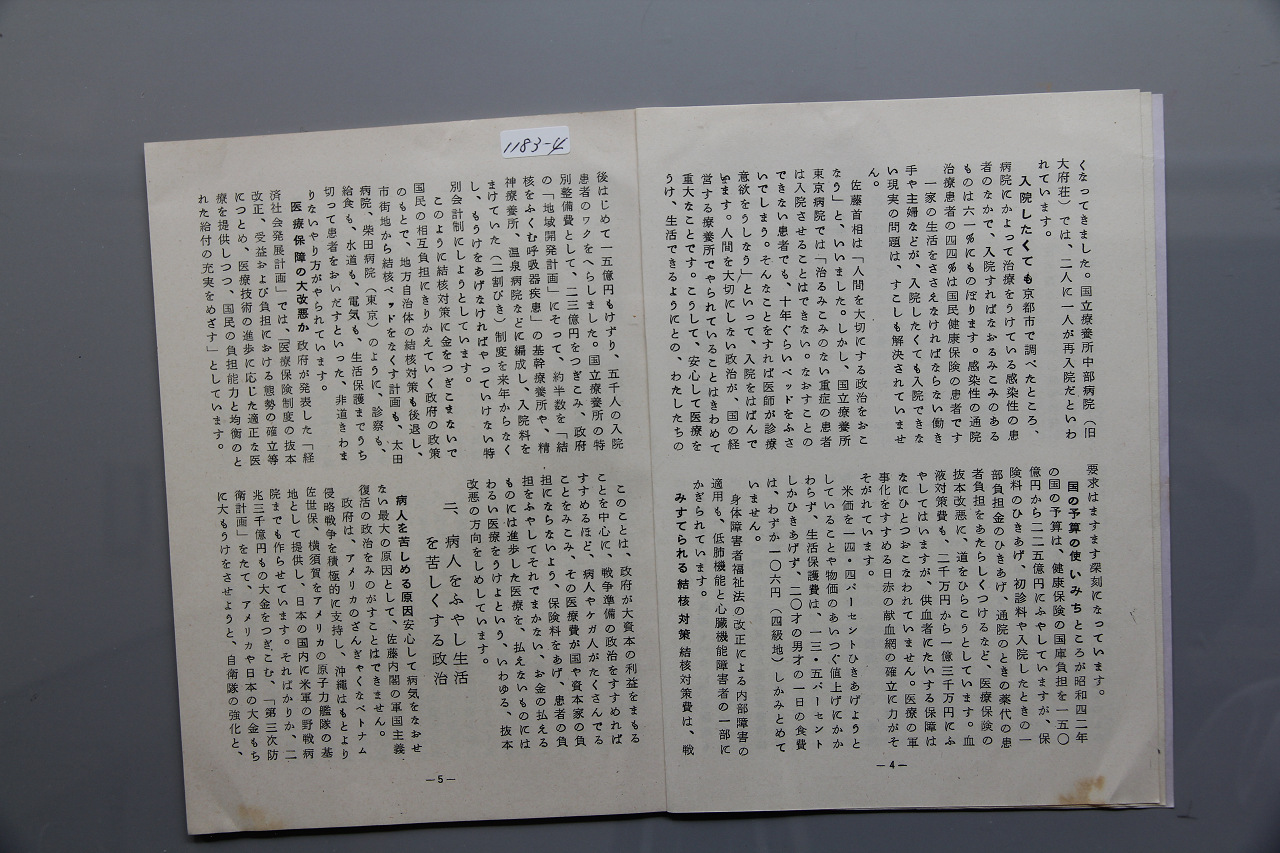 くなってきました。国立療養所中部病院(旧
大府荘)では、二人に一人が再入院だといわ
れています。
入院したくても 京都市で調べたところ、
病院にかよって治療をうけている感染性の患
者のなかで、入院すればなおるみこみのある
ものは六一%にものぼります。感染性の通院
治療患者の四四%は国民健康保険の患者です
一家の生活をささえなければならない働き
手や主婦などが、入院したくても入院できな
い現実の問題は、すこしも解決されていませ
ん。
佐藤首相は「人間を大切にする政治をおこ
なう」と、いいました。しかし、国立療養所
東京病院では「治るみこみのない重症の患者
は入院させることはできない。なおすことの
できない患者でも、十年ぐらいベッドをふさ
いでしまう。そんなことをすれば医師が診療
意欲をうしなう」といって、入院をはばんで
います。人間を大切にしない政治が、国の経
営する療養所でやられていることはきわめて
重大なことです。こうして、安心して医療を
うけ、生活できるようにとの、わたしたちの
要求はますます深刻になっています。
国の予算の使いみち ところが昭和四二年
の国の予算は、健康保険の国庫負担を一五〇
億円から二二五億円にふやしていますが、保
険料のひきあげ、初診料や入院したときの一
部負担金のひきあげ、通院のときの薬代の患
者負担をあたらしくつけるなど、医療保険の
抜本改悪に、道をひらこうとしています。血
液対策費も、二千万円から一億三千万円にふ
やしてはいますが、供血者にたいする保障は
なにひとつおこなわれていません。医療の軍
事化をすすめる日赤の献血網の確立に力がそ
そがれています。
米価を一四・四パーセントひきあげようと
していることや物価のあいつぐ値上げにかか
わらず、生活保護費は、一三・五パーセント
しかひきあげず、二〇才の男才の一日の食費
は、わずか一〇六円(四級地)しかみとめて
いません。
身体障害者福祉法の改正による内部障害の
適用も、低肺機能と心臓機能障害者の一部に
かぎられています。
みすてられる結核対策 結核対策費は、戦
—4—
1183-4
後はじめて一五億円もけずり、五千人の入院
患者のワクをへらしました。国立療養所の特
別整備費として、二三億円をつぎこみ、政府
の「地域開発計画」にそって、約半数を「結
核をふくむ呼吸器疾患」の基幹療養所や、精
神療養所、温泉病院などに編成し、入院料を
まけていた(二割びき)制度を来年からなく
し、もうけをあげなければやっていけない特
別会計制にしようとしています。
このように結核対策に金をつぎこまないで
国民の相互負担にきりかえていく政府の政策
のもとで、地方自治体の結核対策も後退し、
市街地から結核ベッドをなくす計画も、太田
病院、柴田病院(東京)のように、診察も、
給食も、水道も、電気も、生活保護までうち
切って患者をおいだすといった、非道きわま
りないやり方がやられています。
医療保障の大改悪か 政府が発表した「経
済社会発展計画」では、「医療保険制度の抜本
改正、受益および負担における態勢の確立等
につとめ、医療技術の進歩に応じた適正な医
療を提供しつつ、国民の負担能力と均衡のと
れた給付の充実をめざす」としています。
このことは、政府が大資本の利益をまもる
ことを中心に、戦争準備の政治をすすめれば
すすめるほど、病人やケガ人がたくさんでる
ことをみこみ、その医療費が国や資本家の負
担にならないよう、保険料をあげ、患者の負
担をふやしてそれでまかない、お金の払える
ものには進歩した医療を、払えないものには
わるい医療をうけよという、いわゆる、抜本
改悪の方向をしめしています。
二、病人をふやし生活
を苦しくする政治
病人を苦しめる原因 安心して病気をなおせ
ない最大の原因として、佐藤内閣の軍国主義
復活の政治をみのがすことはできません。
政府は、アメリカのざんぎゃくなベトナム
侵略戦争を積極的に支持し、沖縄はもとより
佐世保、横須賀をアメリカの原子力艦隊の基
地として提供し、日本の国内に米軍の野戦病
院までも作らせています。そればかりか、二
兆三千億円もの大金をつぎこむ、「第三次防
衛計画」をたて、アメリカや日本の大金もち
に大もうけをさせようと、自衛隊の強化と、
—5—